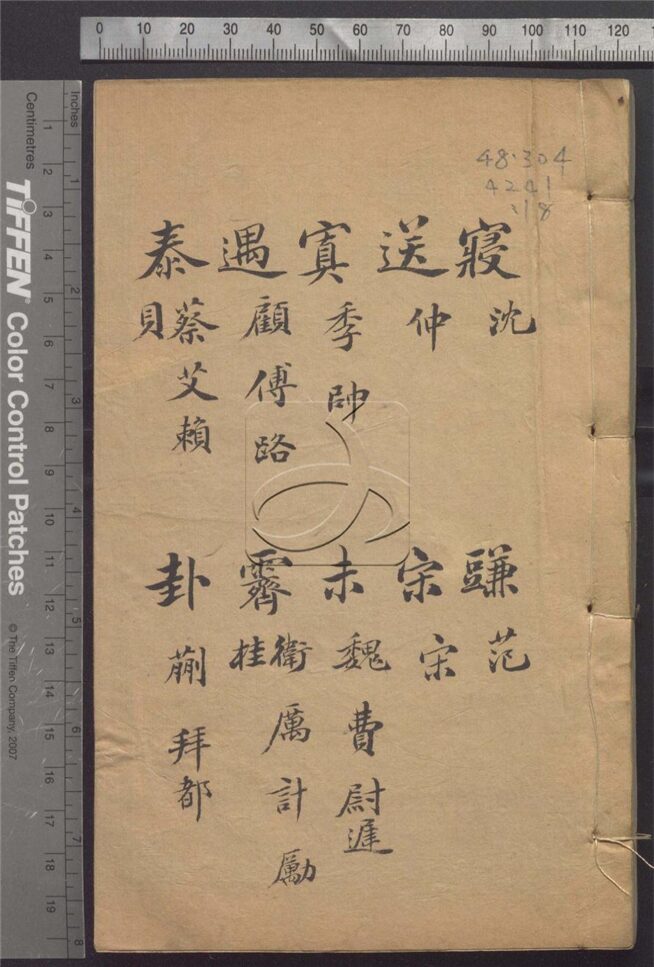 48.304
4241
.18
寢 沈
送 仲
寘 季 帥
遇 顧 傅 路
泰 蔡 艾 賴
貝
豏 范
宋 宋
未 魏 費 尉 遲
霽 衛 厲 計 勵
桂
卦 蒯 拜 都
0 10 20 30 40 50 60 70 80 90 100 110 120
Inches
Centimetres
1 2 3 4 5 6 7 8 9 10 11 12 13 14 15 16 17 18 19
1 2 3 4 5 6 7 8
TIFFEN® Color Control Patches
© The Tiffen Company, 2007